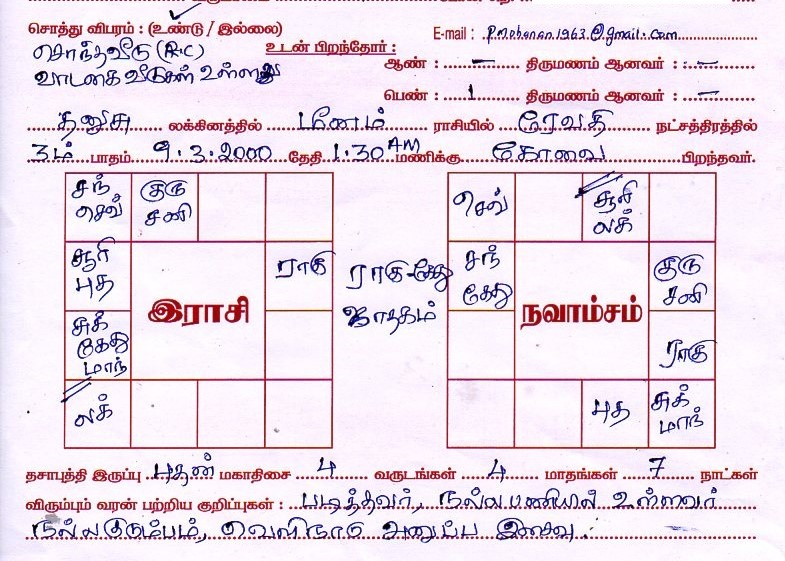 சொத்து விபரம் : (உண்டு / இல்லை)
E-mail : pmohanan1963@gmail.com
சொந்தவீடு (RC)
உடன் பிறந்தோர் :
வாடகை வீடுகள் உள்ளது
ஆண் : – திருமணம் ஆனவர் : –
பெண் : 1 திருமணம் ஆனவர் : –
தனுசு லக்கினத்தில் மீனம் ராசியில் ரேவதி நட்சத்திரத்தில்
3ம் பாதம் 9.3.2000 தேதி 1.30 AM மணிக்கு கோவை பிறந்தவர்.
சந் செவ்
குரு சனி
சூரி புத
ராகு
இராசி
சுக் கேது மாந்
லக்
ராகு-கேது ஜாதகம்
செவ்
சூரி லக்
சந் கேது
குரு சனி
நவாம்சம்
ராகு
புத
சுக் மாந்
தசாபுத்தி இருப்பு புதன் மகாதிசை 4 வருடங்கள் 4 மாதங்கள் 7 நாட்கள்
விரும்பும் வரன் பற்றிய குறிப்புகள் : படித்தவர், நல்ல பணியில் உள்ளவர்
நல்ல குடும்பம், வெளிநாடு அனுப்ப இசைவு.